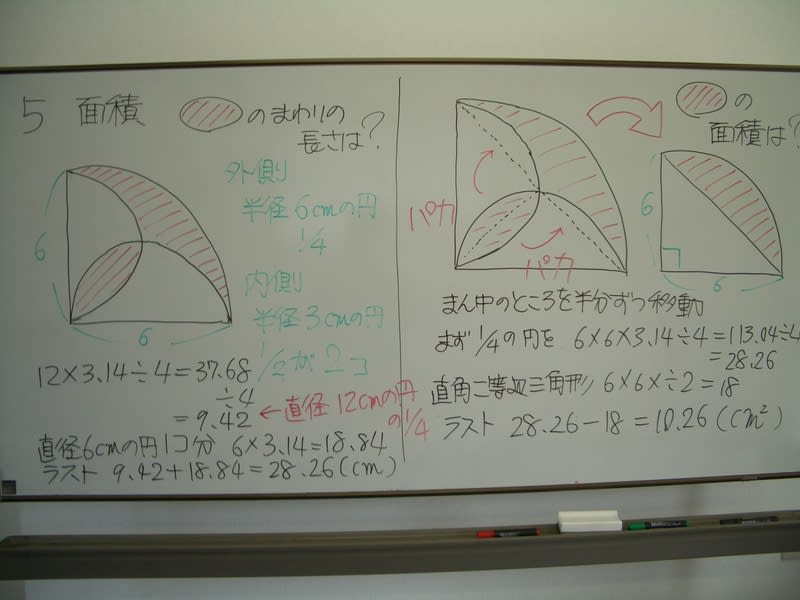 5 面積
のまわりの
長さは?
外側
半径6cmの円
1/4
内側
半径3cmの円
1/2が2コ
6
6
12×3.14÷4=37.68
÷4
=9.42
←直径12cmの円
の1/4
直径6cmの円1コ分 6×3.14=18.84
ラスト 9.42+18.84=28.26(cm)
の
面積は?
パカ
パカ
6
6
まん中のところを半分ずつ移動
まず1/4の円を 6×6×3.14÷4=113.04÷4
=28.26
直角二等辺三角形 6×6÷2=18
ラスト 28.26-18=10.26(cm²)